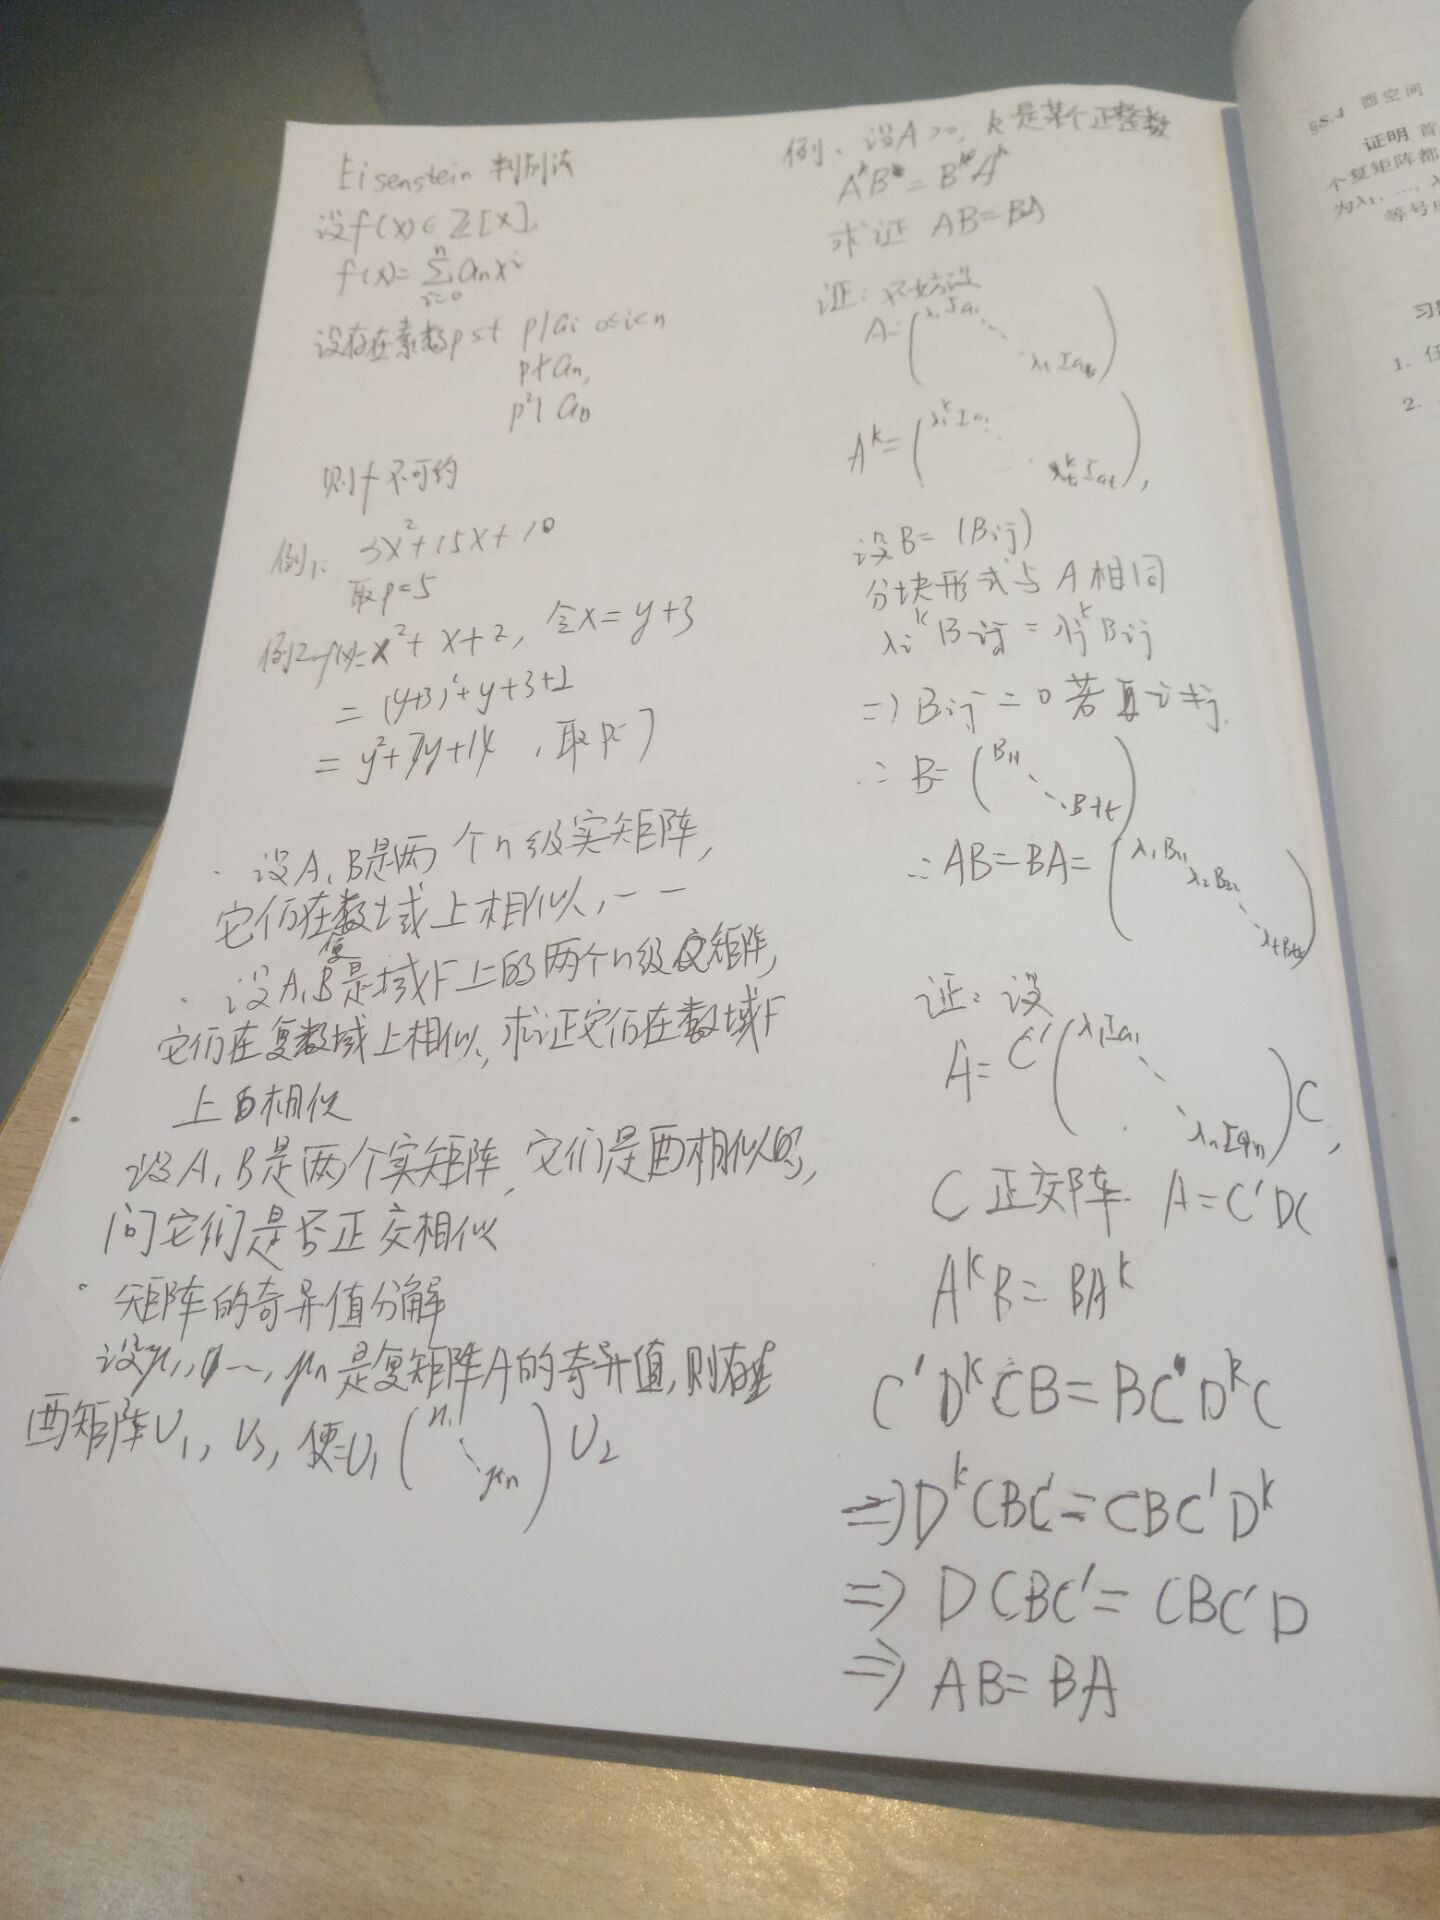 Eisenstein 判别法
设f(x)∈Z[x],
f(x)=∑_{i=0}^{n} a_n x^i
设存在素数p s.t p|a_i 0≤i<n
p∤a_n,
p²∤a_0
则f不可约
例1: 3x²+15x+10
取p=5
例2 f(x)=x²+x+2, 令x=y+3
=(y+3)²+y+3+2
=y²+7y+14 ,取p=7
· 设A,B是两个n级实矩阵,
它们在数域上相似, — —
· 设A,B是域F上的两个n级矩阵,
它们在复数域上相似,求证它们在数域F
上相似
设A,B是两个实矩阵,它们是酉相似的,
问它们是否正交相似
· 矩阵的奇异值分解
设μ_1, …, μ_n是复矩阵A的奇异值,则存在
酉矩阵U_1, U_2, 使=U_1 ( μ_1 ⋱ μ_n ) U_2
例、设A>0, k是某个正整数
A^k B = B A^k
求证 AB=BA
证: 不妨设
A=( λ_1 I_{a_1} ⋱ λ_t I_{a_t} )
A^k=( λ_1^k I_{a_1} λ_t^k I_{a_t} ),
设B=(B_ij)
分块形式与A相同
λ_i^k B_ij = λ_j^k B_ij
⇒ B_ij=0 若i≠j.
∴ B=( B_11 ⋱ B_tt )
∴ AB=BA=( λ_1 B_11 λ_2 B_22 ⋱ λ_t B_tt )
证: 设
A= C' ( λ_1 I_{a_1} ⋱ λ_n I_{a_n} ) C,
C 正交阵. A=C'DC
A^k B=BA^k
C'D^k CB=BC'D^k C
⇒ D^k CBC'=CBC'D^k
⇒ DCBC'=CBC'D
⇒ AB=BA
§8.4 酉空间
证明 首
个复矩阵都
为λ_1, …, λ
等号成
习题
1. 任
2.